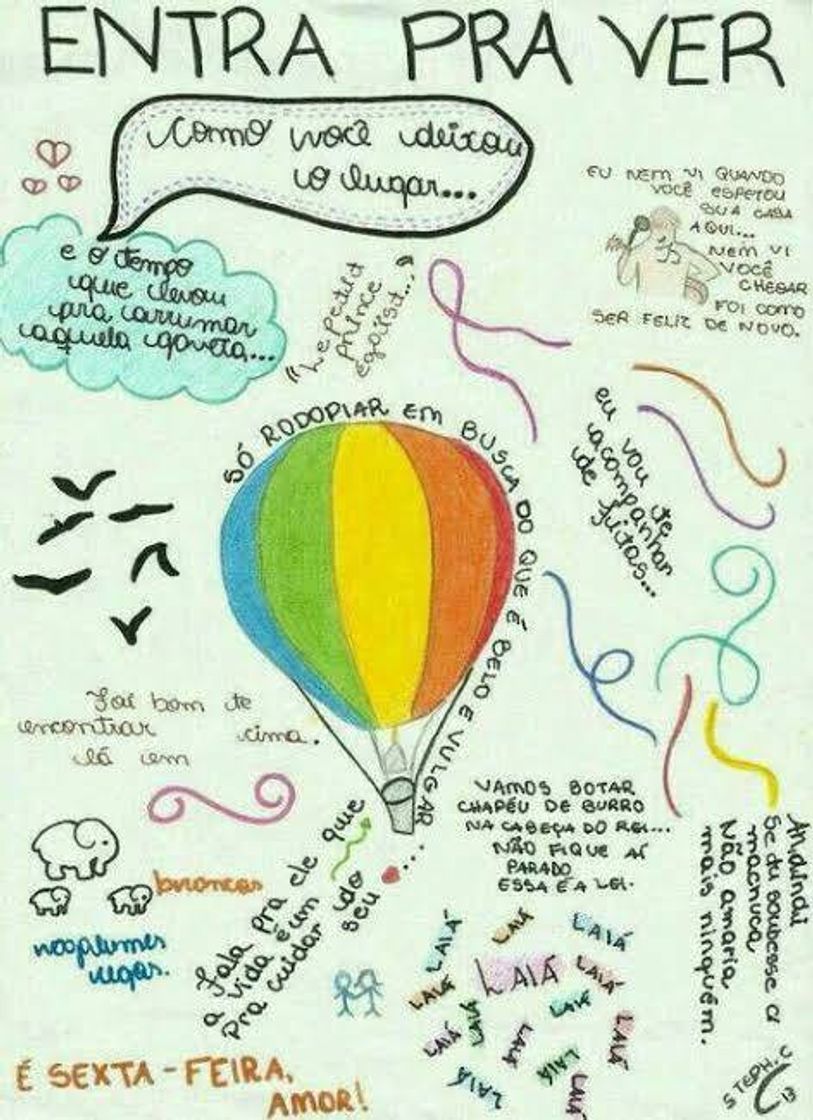 ENTRA PRA VER
Como você deixou
o lugar...
e o tempo
que levou
pra arrumar
aquela gaveta...
EU NEM VI QUANDO
VOCÊ ESPETOU
SUA CASA
AQUI...
NEM VI
VOCÊ
CHEGAR
FOI COMO
SER FELIZ DE NOVO.
"Le Petit
Prince
egoist..."
SÓ RODOPIAR EM BUSCA DO QUE É BELO E VULGAR
eu vou te
acompanhar
de fitas...
Foi bom te
encontrar
lá em cima.
brancas
VAMOS BOTAR
CHAPÉU DE BURRO
NA CABEÇA DO REI...
NÃO FIQUE AÍ
PARADO
ESSA É A LEI.
Fala pra ele que
a vida é um
pra cuidar do
seu ...
Se eu soubesse a
machuca
Não amaria
mais ninguém.
LAIÁ
LAIÁ
LAIÁ
LAIÁ
LAIÁ
LAIÁ
LAIÁ
LAIÁ
LAIÁ
LAIÁ
LAIÁ
LAIÁ
LAIÁ
LAIÁ
É SEXTA-FEIRA,
AMOR!
STEPH. C
13